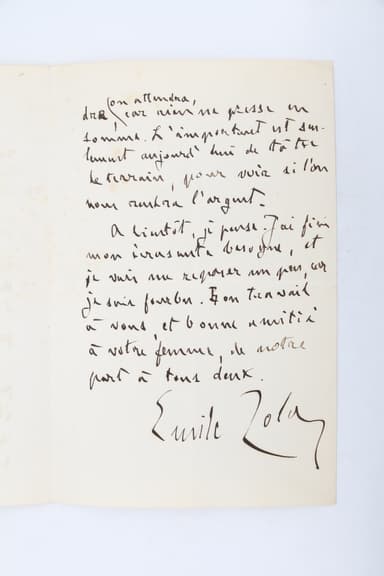 on attendra,
dra, car rien ne presse en
somme. L'important est seu-
lement aujourd'hui de tâter
le terrain, pour voir si l'on
nous rendra l'argent.
A bientôt, je pense. J'ai fini
mon écrasante besogne, et
je vais me reposer un peu, car
je suis fourbu. Bon travail
à vous et bonne amitié
à votre femme, de notre
part à tous deux.
Emile Zola